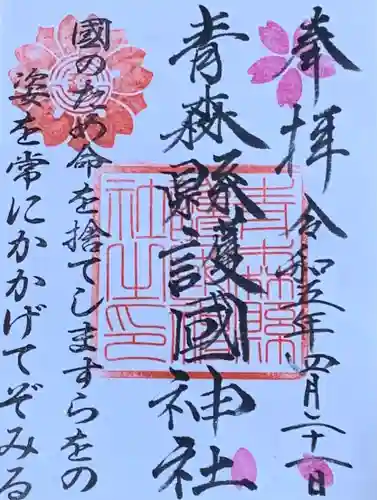 奉拝
令和五年四月二十一日
青森縣護國神社
國のため命を捨てしますらをの
姿を常にかかげてぞみる
青森縣護國神社之印